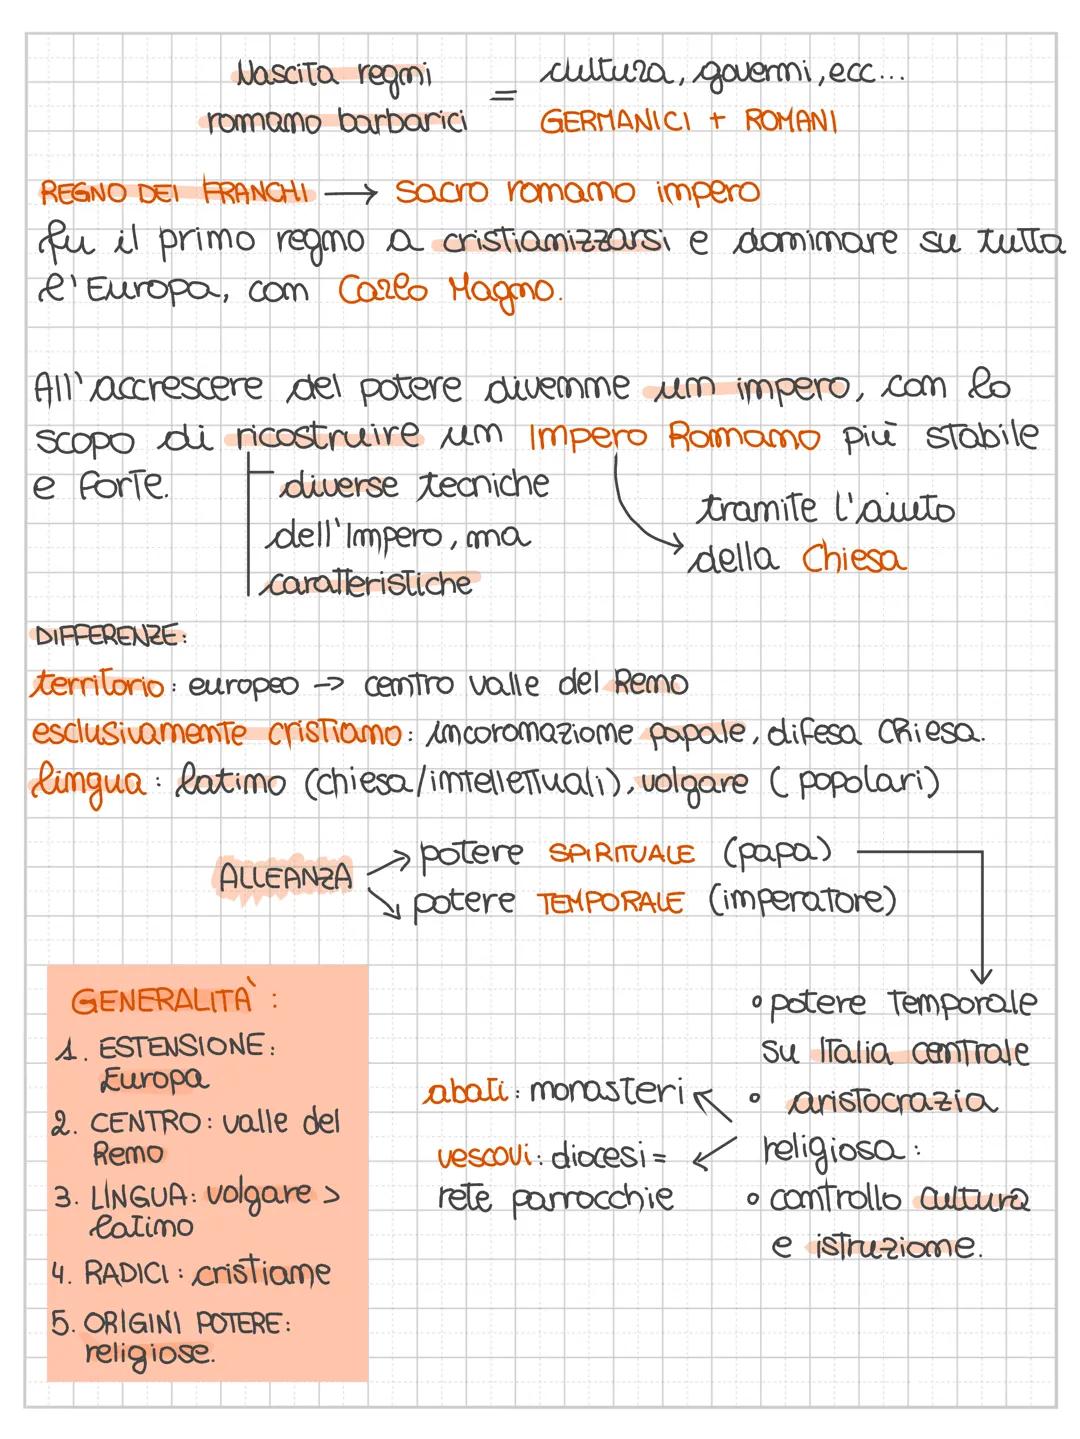 Nascita regni = cultura, governi, ecc...
romano barbarici GERMANICI + ROMANI
REGNO DEI FRANCHI → Sacro romano impero
fu il primo regno a cristianizzarsi e dominare su tutta
l'Europa, con Carlo Magno.
All'accrescere del potere divenne un impero, con lo
scopo di ricostruire un Impero Romano più stabile
e forte.
diverse tecniche
dell'Impero, ma
caratteristiche
tramite l'aiuto
della Chiesa
DIFFERENZE:
territorio: europeo -> centro valle del Reno
esclusivamente cristiano: incoronazione papale, difesa Chiesa.
lingua: latino (chiesa/intellettuali), volgare (popolari)
ALLEANZA
potere SPIRITUALE (papa)
potere TEMPORALE (imperatore)
• potere temporale
su Italia centrale
• aristocrazia
religiosa:
• controllo cultura
e istruzione.
abati: monasteri
vescovi: diocesi =
rete parrocchie
GENERALITÀ:
1. ESTENSIONE:
Europa
2. CENTRO: valle del
Reno
3. LINGUA: volgare >
latino
4. RADICI: cristiane
5. ORIGINI POTERE:
religiose.